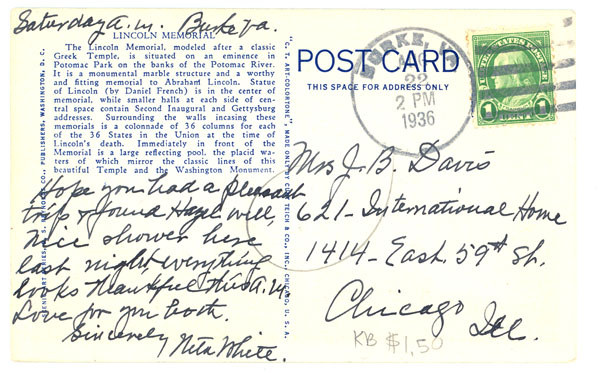 Saturday A. M. Burke Va.
LINCOLN MEMORIAL
The Lincoln Memorial, modeled after a classic
Greek Temple, is situated on an eminence in
Potomac Park on the banks of the Potomac River.
It is a monumental marble structure and a worthy
and fitting memorial to Abraham Lincoln. Statue
of Lincoln (by Daniel French) is in the center of
memorial, while smaller halls at each side of cen-
tral space contain Second Inaugural and Gettysburg
addresses. Surrounding the walls incasing these
memorials is a colonnade of 36 columns for each
of the 36 States in the Union at the time of
Lincoln's death. Immediately in front of the
Memorial is a large reflecting pool, the placid wa-
ters of which mirror the classic lines of this
beautiful Temple and the Washington Monument.
Hope you had a pleasant
trip & found Hazel well,
Nice shower here
last night, everything
looks thankful this A. M.
Love for you both.
Sincerely
Neta White.
PUBLISHERS, WASHINGTON, D. C.
"C. T. ART-COLORTONE", MADE ONLY BY CURT TEICH & CO., INC., CHICAGO, U. S. A.
POST CARD
THIS SPACE FOR ADDRESS ONLY
BURKE, VA.
22
2 PM
1936
UNITED STATES POSTAGE
1 1
CENT
Mrs J. B. Davis
621 - International Home
1414 - East. 59th St.
Chicago
Ill.
KB $1.50